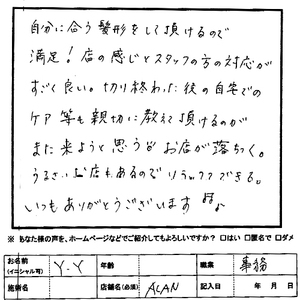 自分に合う髪形をして頂けるので
満足!店の感じとスタッフの方の対応が
すごく良い。切り終わった後の自宅での
ケア等も親切に教えて頂けるのが
また来ようと思う お店が落ちつく。
うるさいお店もあるのでリラックスできる。
いつもありがとうございます
※ あなた様の声を、ホームページなどでご紹介してもよろしいですか? □はい □匿名で □ダメ
お名前(イニシャル可) Y.Y 年齢 職業 事務
施術名 店舗名(必須) ALAN 記入日 年 月 日